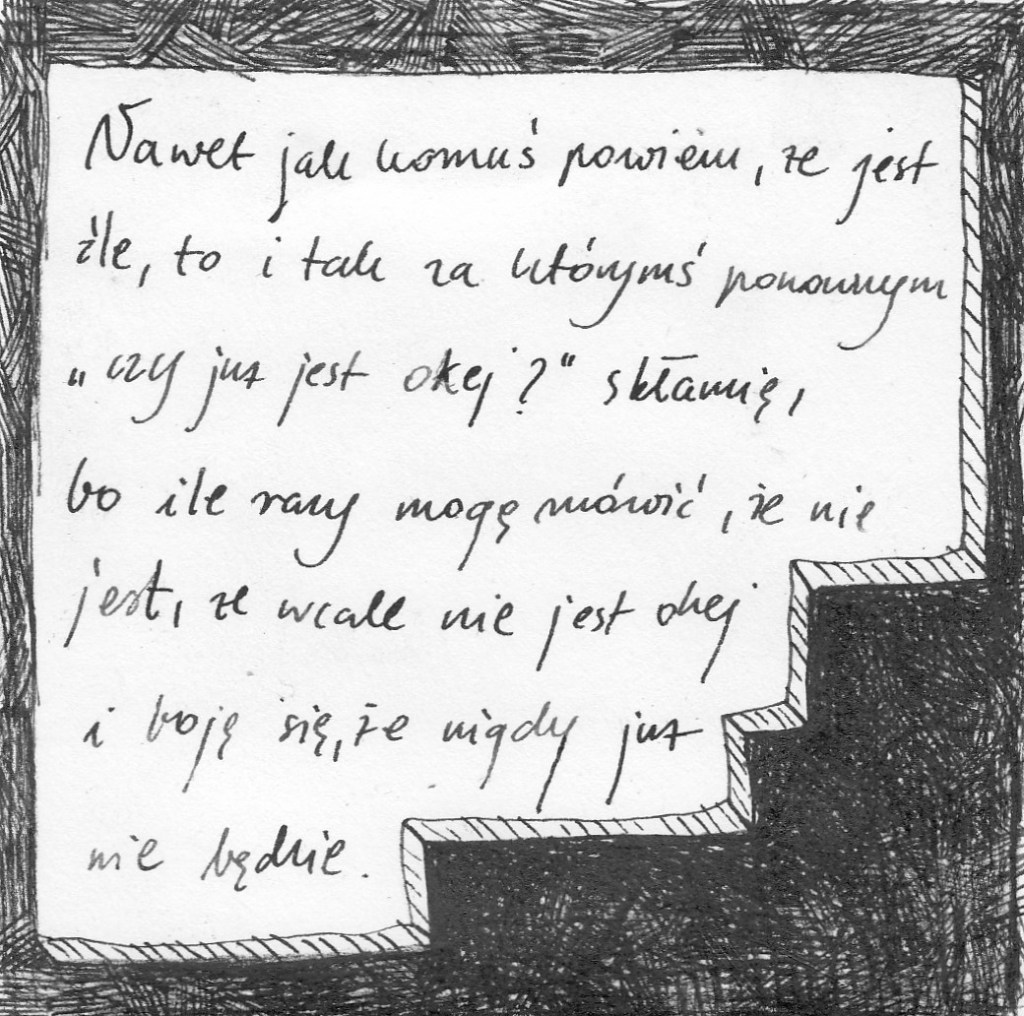 Nawet jak komuś powiem, że jest
źle, to i tak za którymś ponownym
„czy już jest okej?" skłamię,
bo ile razy mogę mówić, że nie
jest, że wcale nie jest okej
i boję się, że nigdy już
nie będzie.